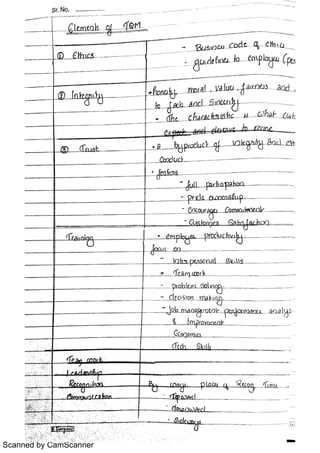 Sr. No.
Elements of TQM
① Ethics - Business Code of ethics
- guidelines to employee (per
② Integrity • honesty, moral, values, fairness and
to facts and sincerity
• The characteristic is what cust
expect and deserve to receive
③ Trust • a byproduct of integrity and eth
Conduct
• fosters
- full participation
- pride ownership
- Encourages Commitment
- Customer Satisfaction
Training • employee productivity
focus on
- interpersonal Skills
• Team work
- problem Solving
- decision making
- Job management performance analysis
& Improvement
Tech Skills
Team work
Leadership
Recognition By ways, place of Recog. Time
Communication
- Downward
- Sideways
Scanned by CamScanner